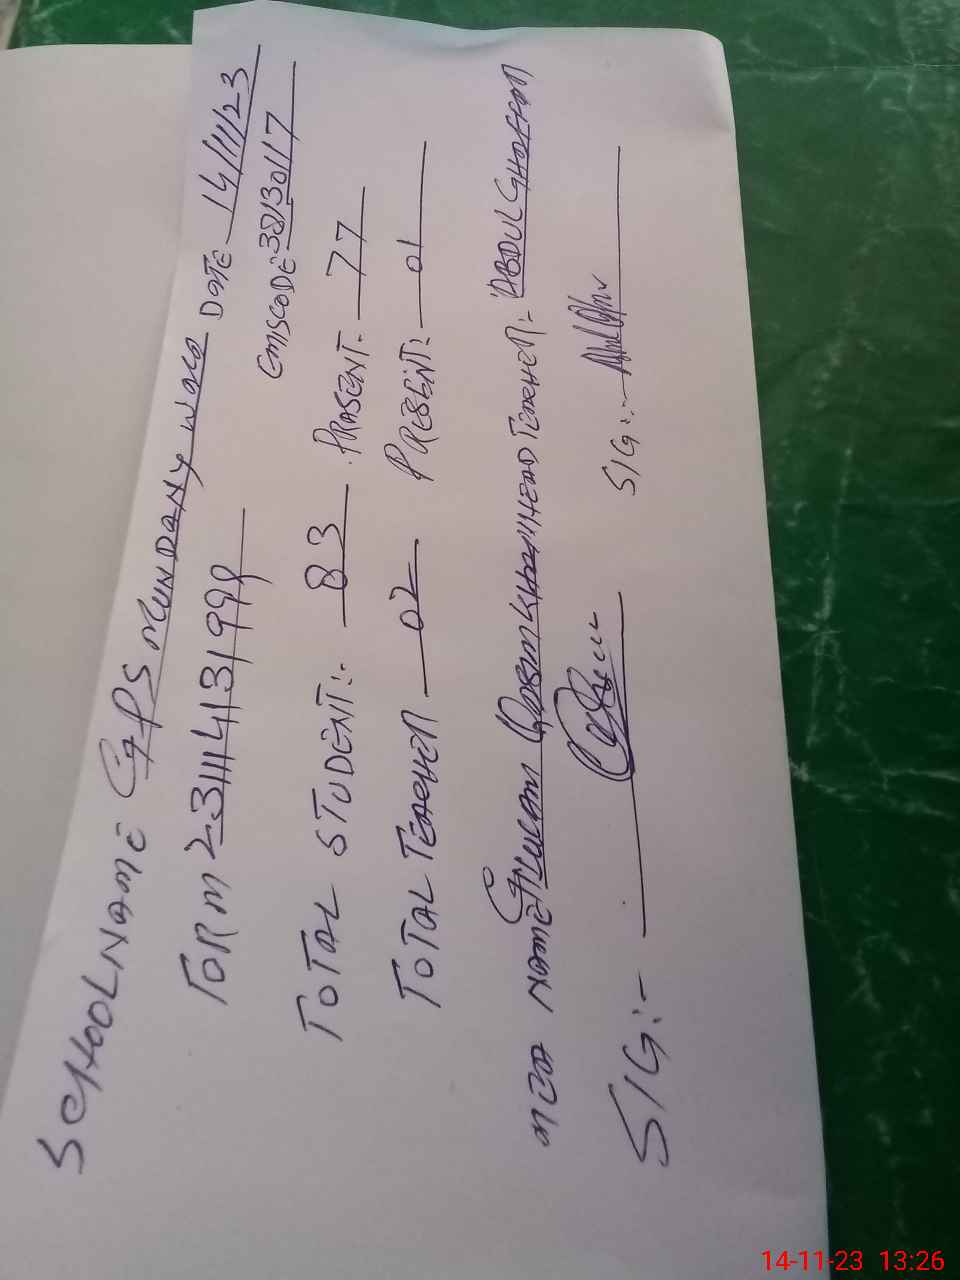 SCHOOLNAME GPS MUNDANY WALA DATE 14/11/23
FORM 231114131998 EMISCODE 38130117
TOTAL STUDENT:- 83 . PRASENT:- 77
TOTAL TEACHER 02 PRESENT:- 01
MEA NAME GHULAM QASIM KHAN HEAD TEACHER:- ABDUL GHAFFAR
SIG:- SIG:-
14-11-23 13:26